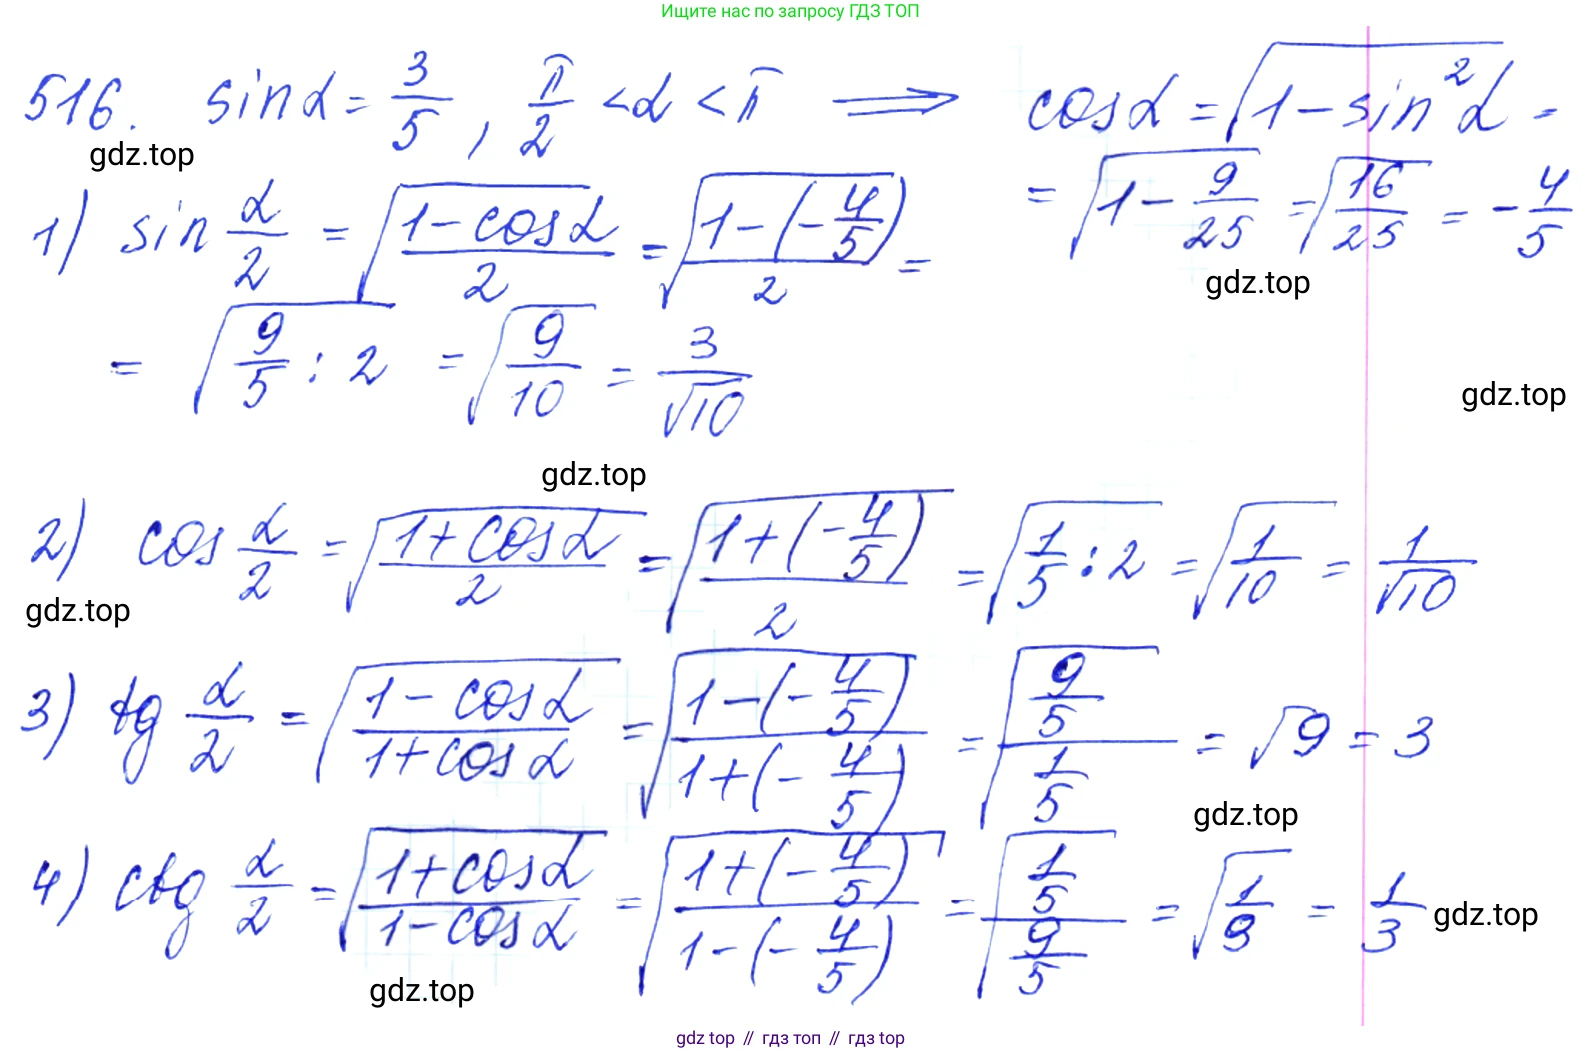 Ищите нас по запросу ГДЗ ТОП
516. sin α = 3/5, π/2 < α < π ⟹ cos α = √(1 − sin² α) =
gdz.top
= √(1 − 9/25) = √(16/25) = −4/5
1) sin α/2 = √((1 − cos α)/2) = √((1 − (−4/5))/2) =
gdz.top
= √(9/5 : 2) = √(9/10) = 3/√10
gdz.top
gdz.top
2) cos α/2 = √((1 + cos α)/2) = √((1 + (−4/5))/2) = √(1/5 : 2) = √(1/10) = 1/√10
gdz.top
3) tg α/2 = √((1 − cos α)/(1 + cos α)) = √((1 − (−4/5))/(1 + (−4/5))) = √((9/5)/(1/5)) = √9 = 3
gdz.top
4) ctg α/2 = √((1 + cos α)/(1 − cos α)) = √((1 + (−4/5))/(1 − (−4/5))) = √((1/5)/(9/5)) = √(1/9) = 1/3
gdz.top
gdz.top
gdz top // гдз топ // гдз top